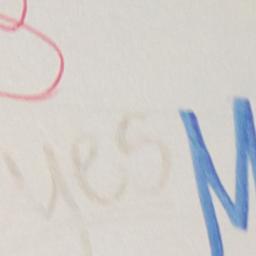 yes M